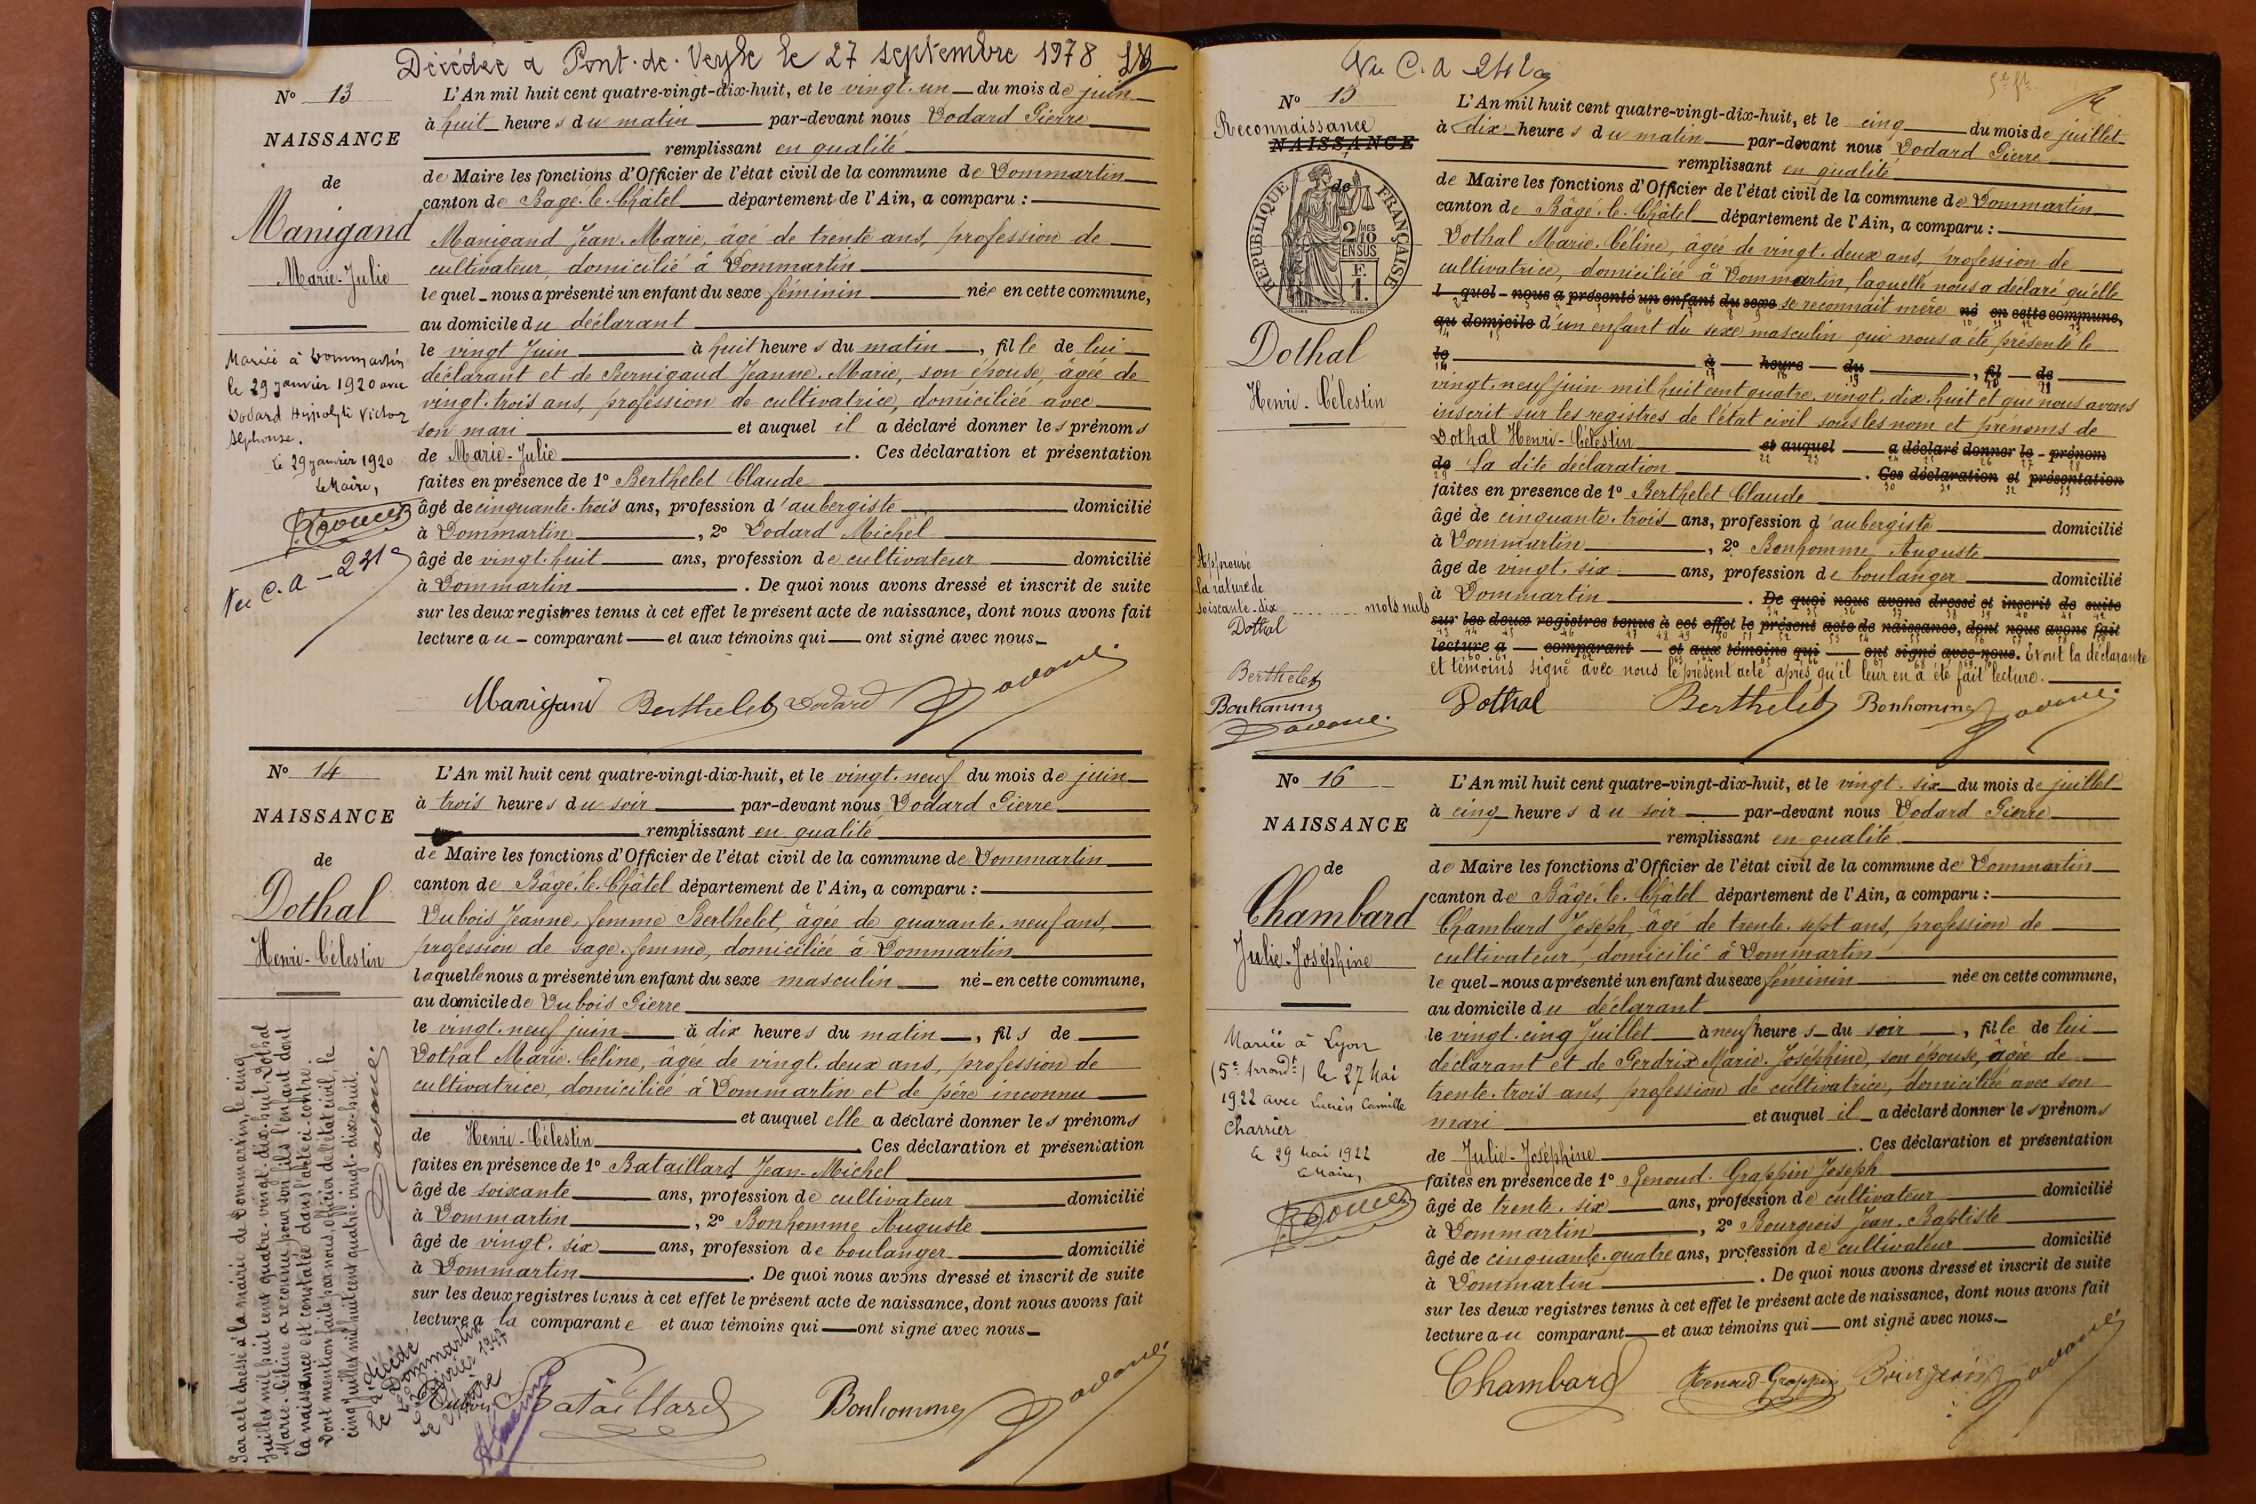 Décédée à Pont-de-Veyle le 27 septembre 1978
N° 13
NAISSANCE
de
Manigand
Marie-Julie
Mariée à Dommartin
le 29 janvier 1920 avec
Dodard Hippolyte Victor
Alphonse.
Le 29 janvier 1920
Le Maire,
Vu C. A - 231
L'An mil huit cent quatre-vingt-dix-huit, et le vingt-un du mois de juin
à huit heures du matin par-devant nous Dodard Pierre
remplissant en qualité
de Maire les fonctions d'Officier de l'état civil de la commune de Dommartin
canton de Bâgé-le-Châtel département de l'Ain, a comparu :
Manigand Jean-Marie, âgé de trente ans, profession de
cultivateur, domicilié à Dommartin
lequel nous a présenté un enfant du sexe féminin née en cette commune,
au domicile du déclarant
le vingt Juin à huit heures du matin, fille de lui
déclarant et de Bernigaud Jeanne-Marie, son épouse, âgée de
vingt-trois ans, profession de cultivatrice, domiciliée avec
son mari et auquel il a déclaré donner les prénoms
de Marie-Julie. Ces déclaration et présentation
faites en présence de 1° Berthelet Claude
âgé de cinquante-trois ans, profession d'aubergiste domicilié
à Dommartin, 2° Dodard Michel
âgé de vingt-huit ans, profession de cultivateur domicilié
à Dommartin. De quoi nous avons dressé et inscrit de suite
sur les deux registres tenus à cet effet le présent acte de naissance, dont nous avons fait
lecture au comparant et aux témoins qui ont signé avec nous
Manigand Berthelet Dodard Dodard
N° 14
NAISSANCE
de
Dothal
Henri-Célestin
Par acte dressé à la mairie de Dommartin le cinq
Juillet mil huit cent quatre-vingt-dix-huit, Dothal
Marie-Céline a reconnu pour son fils l'enfant dont
la naissance est constatée dans l'acte ci-contre.
Dont mention faite par nous, officier de l'état civil, le
cinq juillet mil huit cent quatre-vingt-dix-huit.
Dodard
décédé
Dommartin
L'An mil huit cent quatre-vingt-dix-huit, et le vingt-neuf du mois de juin
à trois heures du soir par-devant nous Dodard Pierre
remplissant en qualité
de Maire les fonctions d'Officier de l'état civil de la commune de Dommartin
canton de Bâgé-le-Châtel département de l'Ain, a comparu :
Dubois Jeanne, femme Berthelet, âgée de quarante-neuf ans,
profession de sage-femme, domiciliée à Dommartin
laquelle nous a présenté un enfant du sexe masculin né en cette commune,
au domicile de Dubois Pierre
le vingt-neuf juin à dix heures du matin, fils de
Dothal Marie-Céline, âgée de vingt-deux ans, profession de
cultivatrice, domiciliée à Dommartin et de père inconnu
et auquel elle a déclaré donner les prénoms
de Henri-Célestin Ces déclaration et présentation
faites en présence de 1° Bataillard Jean-Michel
âgé de soixante ans, profession de cultivateur domicilié
à Dommartin, 2° Bonhomme Auguste
âgé de vingt-six ans, profession de boulanger domicilié
à Dommartin. De quoi nous avons dressé et inscrit de suite
sur les deux registres tenus à cet effet le présent acte de naissance, dont nous avons fait
lecture a la comparante et aux témoins qui ont signé avec nous
Dubois Bataillard Bonhomme Dodard
Vu C. A
N° 15
Reconnaissance
NAISSANCE
de
RÉPUBLIQUE FRANÇAISE
2/10 MES
EN SUS
F.
1.
Dothal
Henri-Célestin
Approuvé
la rature de
soixante-dix mots nuls
Dothal
Berthelet
Bonhomme
Dodard
L'An mil huit cent quatre-vingt-dix-huit, et le cinq du mois de juillet
à dix heures du matin par-devant nous Dodard Pierre
remplissant en qualité
de Maire les fonctions d'Officier de l'état civil de la commune de Dommartin
canton de Bâgé-le-Châtel département de l'Ain, a comparu :
Dothal Marie-Céline, âgée de vingt-deux ans, profession de
cultivatrice, domiciliée à Dommartin, laquelle nous a déclaré qu'elle
l quel nous a présenté un enfant du sexe se reconnait mère né en cette commune,
au domicile d'un enfant du sexe masculin qui nous a été présenté le
le à heure du, fil de
vingt-neuf juin mil huit cent quatre-vingt-dix-huit et que nous avons
inscrit sur les registres de l'état civil sous les nom et prénoms de
Dothal Henri-Célestin et auquel a déclaré donner le prénom
de La dite déclaration. Ces déclaration et présentation
faites en présence de 1° Berthelet Claude
âgé de cinquante-trois ans, profession d'aubergiste domicilié
à Dommartin, 2° Bonhomme Auguste
âgé de vingt-six ans, profession de boulanger domicilié
à Dommartin. De quoi nous avons dressé et inscrit de suite
sur les deux registres tenus à cet effet le présent acte de naissance, dont nous avons fait
lecture a comparant et aux témoins qui ont signé avec nous. Et ont la déclarante
et témoins signé avec nous le présent acte après qu'il leur en a été fait lecture.
Dothal Berthelet Bonhomme Dodard
N° 16
NAISSANCE
de
Chambard
Julie-Joséphine
Mariée à Lyon
(5e Arrondt) le 27 Mai
1922 avec Lucien Camille
Charrier
Le 29 Mai 1922
Le Maire,
L'An mil huit cent quatre-vingt-dix-huit, et le vingt-six du mois de juillet
à cinq heures du soir par-devant nous Dodard Pierre
remplissant en qualité
de Maire les fonctions d'Officier de l'état civil de la commune de Dommartin
canton de Bâgé-le-Châtel département de l'Ain, a comparu :
Chambard Joseph, âgé de trente-sept ans, profession de
cultivateur, domicilié à Dommartin
lequel nous a présenté un enfant du sexe féminin née en cette commune,
au domicile du déclarant
le vingt-cinq Juillet à neuf heures du soir, fille de lui
déclarant et de Perdrix Marie-Joséphine, son épouse, âgée de
trente-trois ans, profession de cultivatrice, domiciliée avec son
mari et auquel il a déclaré donner les prénoms
de Julie-Joséphine. Ces déclaration et présentation
faites en présence de 1° Renoud-Grappin Joseph
âgé de trente-six ans, profession de cultivateur domicilié
à Dommartin, 2° Bourgeois Jean-Baptiste
âgé de cinquante-quatre ans, profession de cultivateur domicilié
à Dommartin. De quoi nous avons dressé et inscrit de suite
sur les deux registres tenus à cet effet le présent acte de naissance, dont nous avons fait
lecture au comparant et aux témoins qui ont signé avec nous.
Chambard Renoud-Grappin Bourgeois Dodard